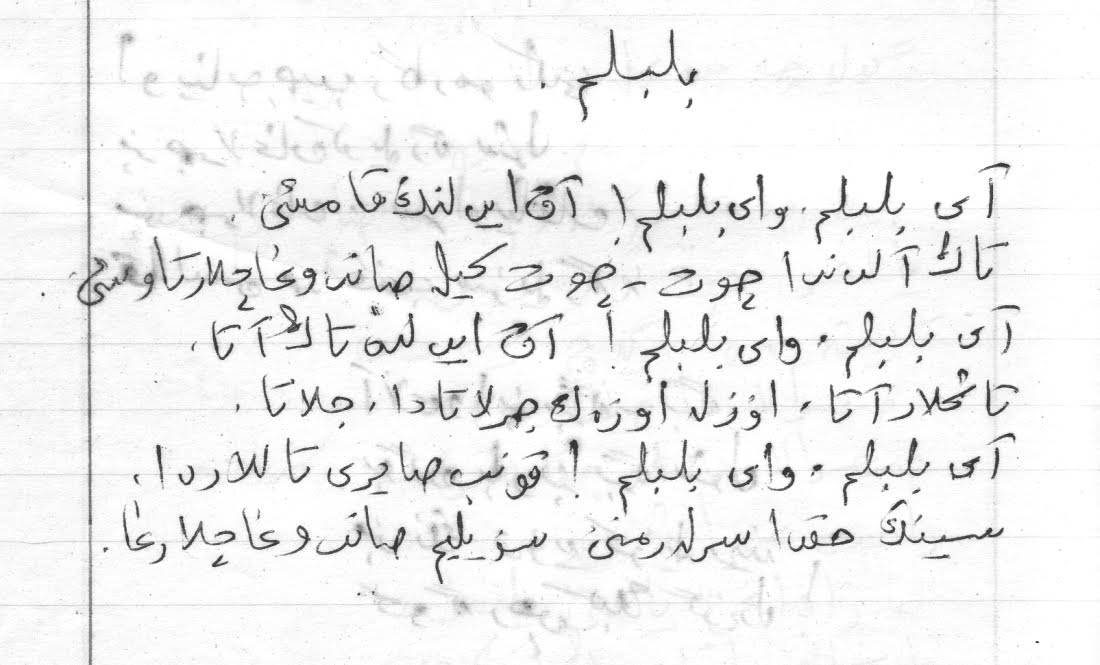 بلبلم.
آی بلبلم. وای بلبلم! آق ایدلنڭ قامشی.
تاڭ آلدندا چوت - چوت کیلە صاندوغاچلار تاوشی.
آی بلبلم. وای بلبلم! آق ایدلدە تاڭ آتا.
تاڭلار آتا. اوزلە اوزەك جرلاتادا. جلاتا.
آی بلبلم. وای بلبلم! قونب صایری تاللاردا.
سینڭ حقدا سرلەرمنی سویلیم صاندوغاچلارغا.